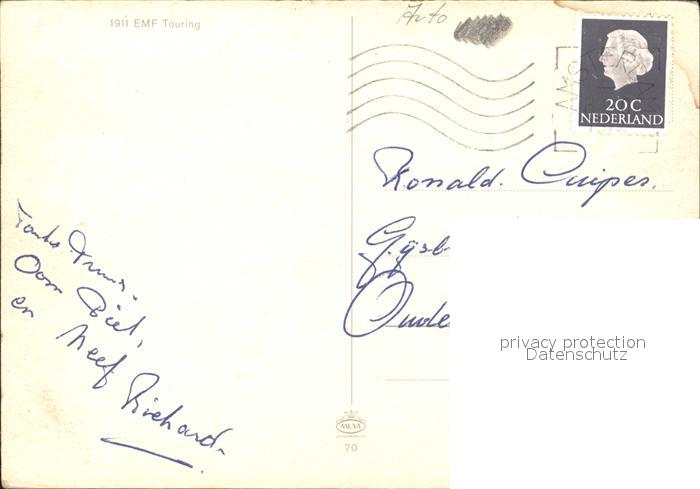 1911 EMF Touring
Auto
20 C
NEDERLAND
Ronald. Cuiper.
Gijsb
Oude
Tante Truus.
Oom Piet,
en Neef Richard.
privacy protection
Datenschutz
MUVA
70